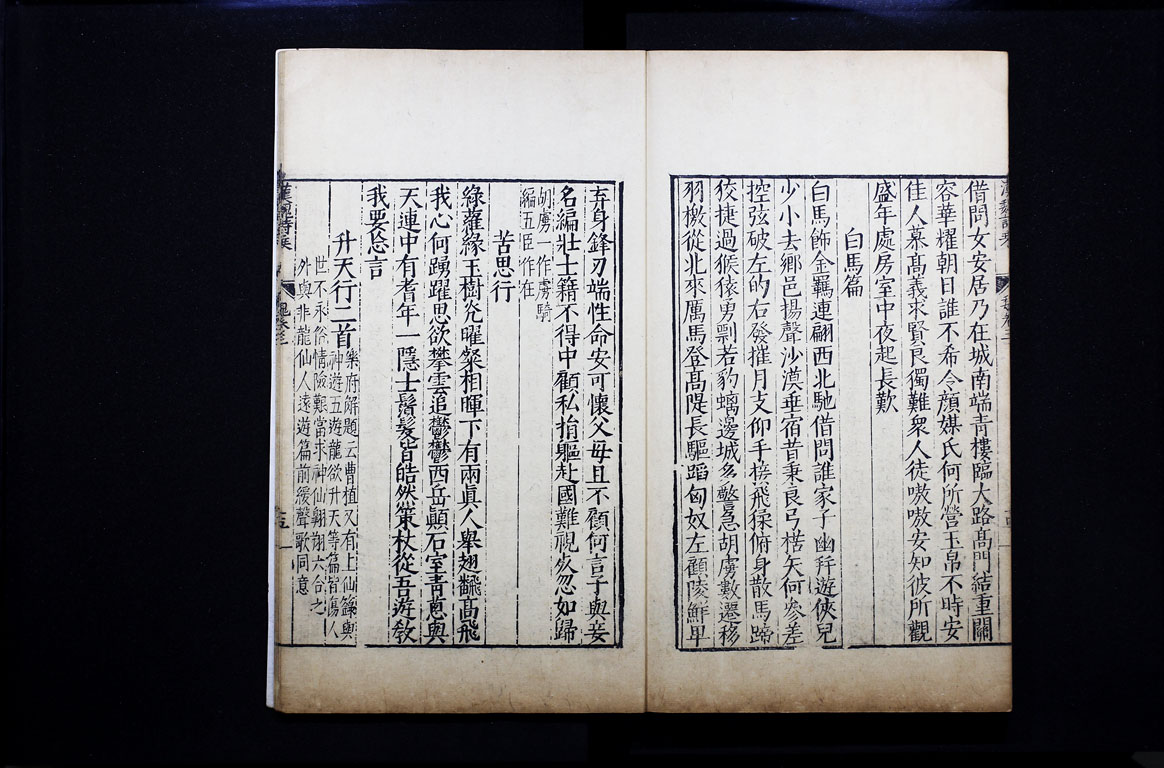 借問女安居乃在城南端青樓臨大路髙門結重關
容華耀朝日誰不希令顔媒氏何所營玉帛不時安
佳人慕髙義求賢良獨難衆人徒嗷嗷安知彼所觀
盛年處房室中夜起長歎
白馬篇
白馬飾金羈連翩西北馳借問誰家子幽幷遊俠兒
少小去鄉邑揚聲沙漠垂宿昔秉良弓楛矢何參差
控弦破左的右發摧月支仰手接飛猱俯身散馬蹄
狡捷過猴猿勇剽若豹螭邊城多警急胡虜數遷移
羽檄從北來厲馬登髙隄長驅蹈匈奴左顧陵鮮卑
弃身鋒刃端性命安可懷父毋且不顧何言子與妾
名編壯士籍不得中顧私捐軀赴國難視死忽如歸
胡虜一作虜騎
編五臣作在
苦思行
綠蘿緣玉樹光曜粲相暉下有兩眞人舉翅飜髙飛
我心何踴躍思欲攀雲追鬱鬱西岳顚石室青蔥與
天連中有耆年一隱士鬚髮皆皓然策杖從吾遊敎
我要忘言
升天行二首
樂府解題云曹植又有上仙籙與
神遊五遊龍欲升天等篇皆傷人
世不永俗情險艱當求神仙翺翔六合之
外與飛龍仙人逺遊篇前緩聲歌同意
漢魏詩乗
魏卷三
十五